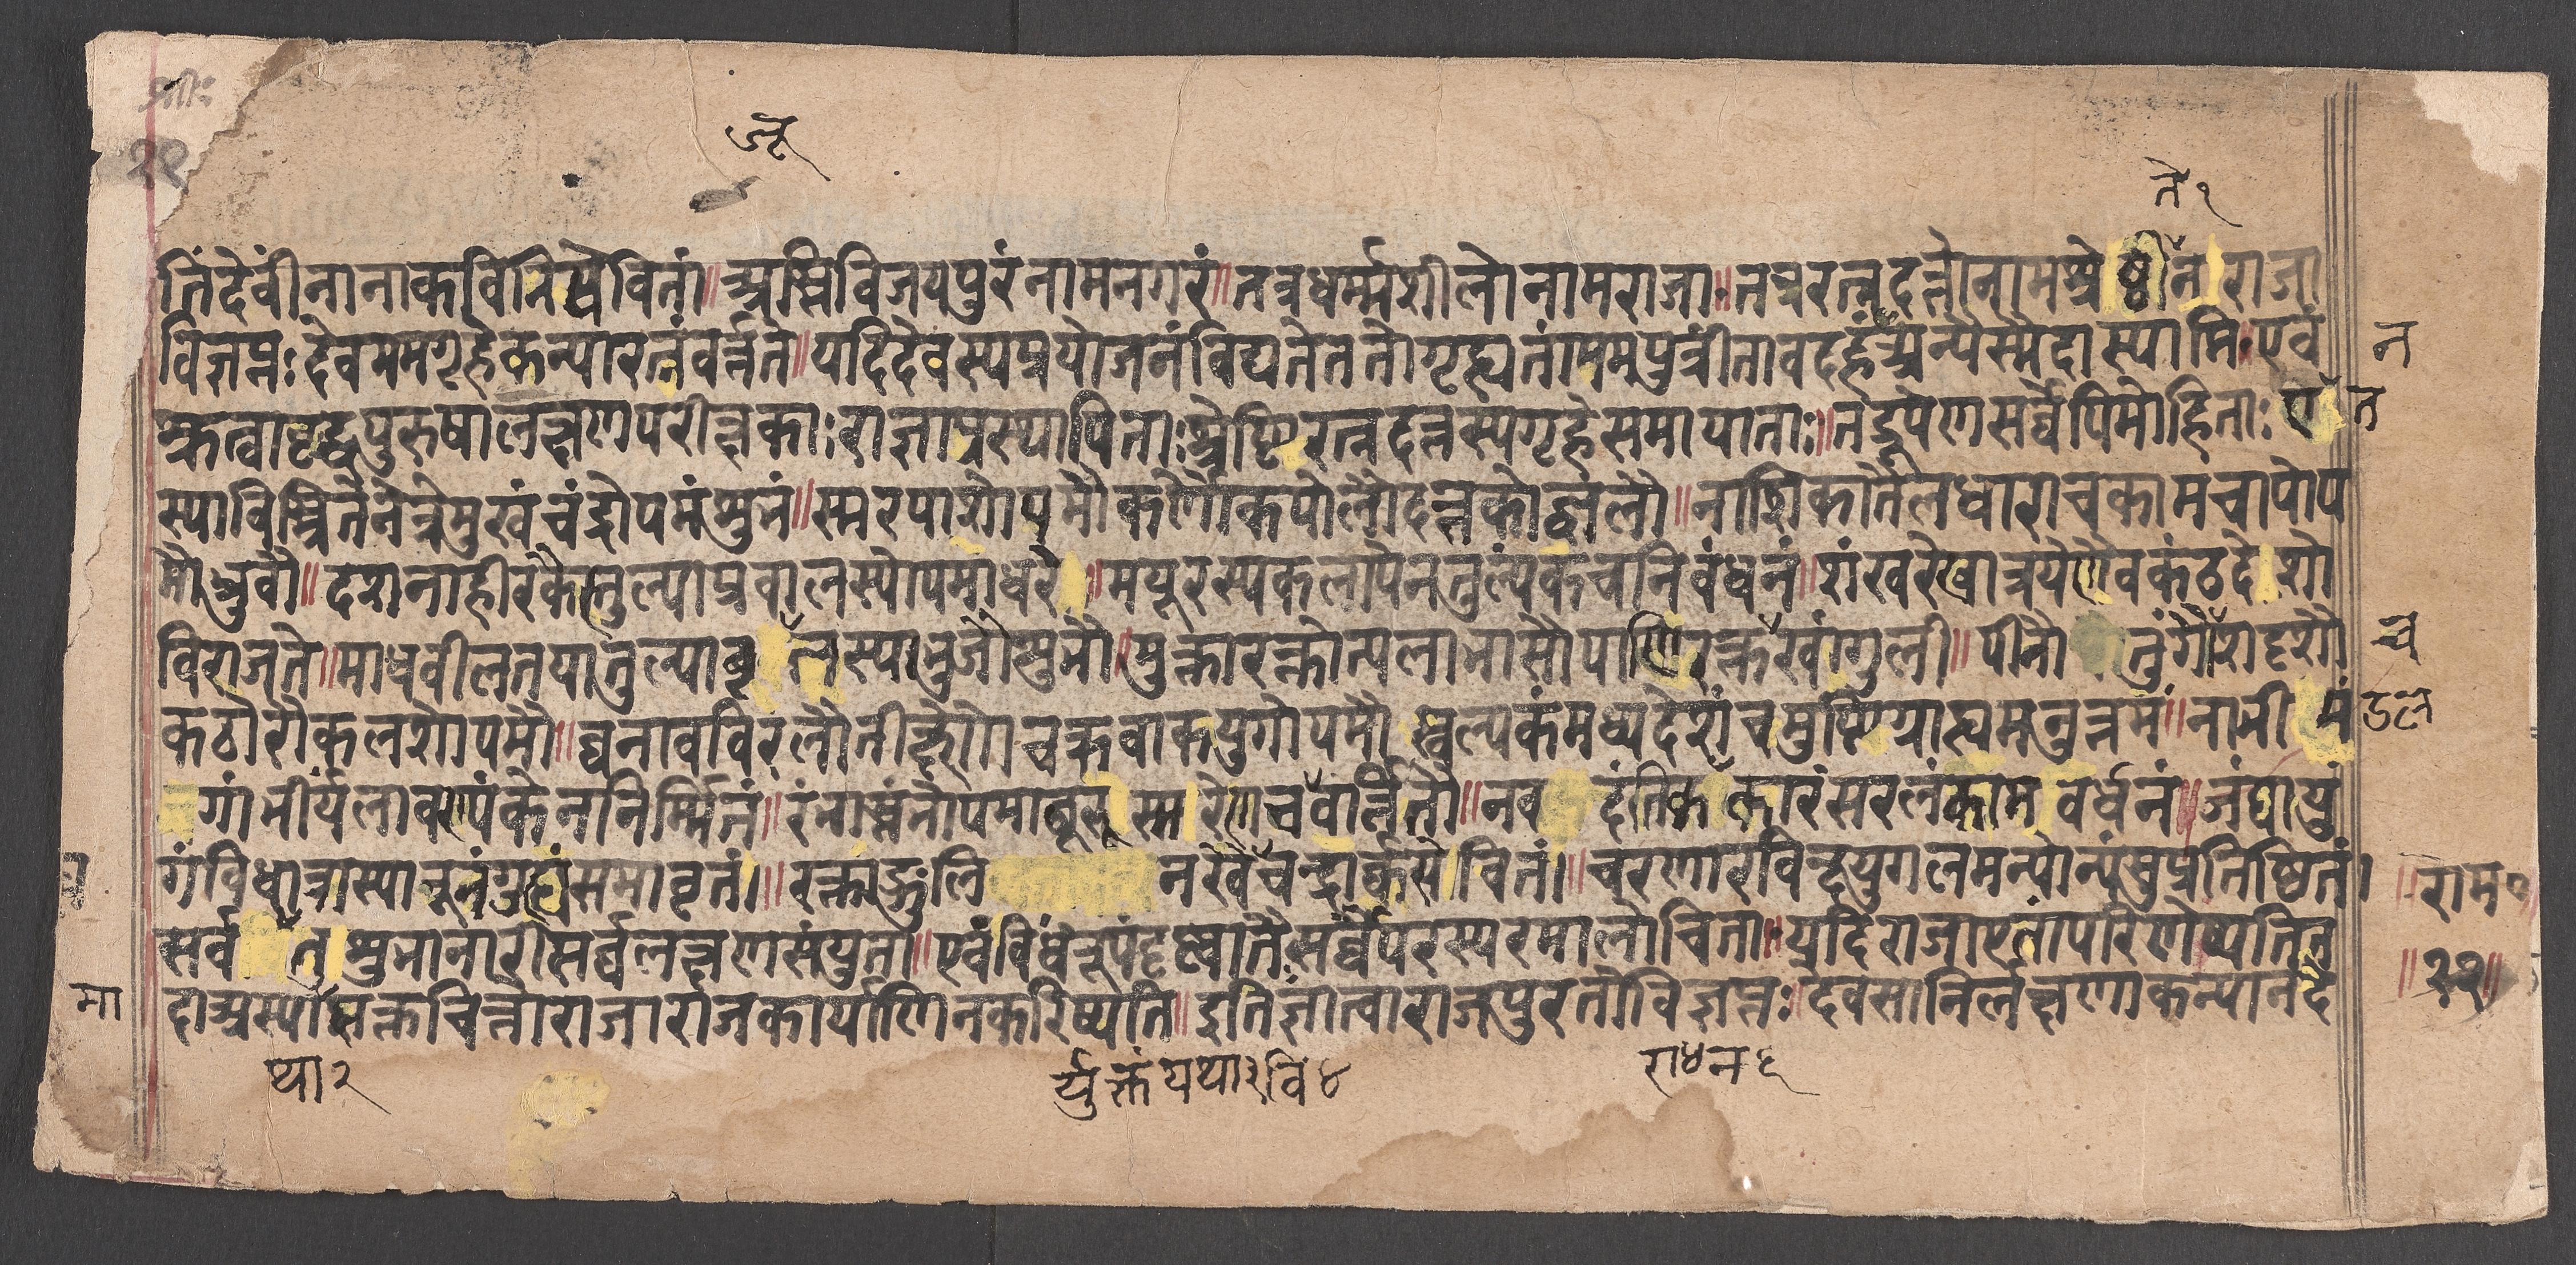 श्रीः
२१
तिं देवीं नानाकविनिषेवितां॥ अस्ति विजयपुरं नाम नगरं॥ तत्र धर्म्मशीलो नाम राजा॥ तत्र रत्नदत्तो नाम श्रेष्ठी न राजा
ते१
विज्ञप्तः देव मम गृहे कन्यारत्नं वर्त्तते॥ यदि देवस्य प्रयोजनं विद्यते ततो गृह्यतां मम पुत्रीं तावदहं अन्यस्मै दास्यामि॥ एवं
न
कृत्वा वृद्धपुरुषा लक्षणपरीक्षकाः राज्ञा प्रस्थापिताः श्रेष्टि रत्नदत्तस्य गृहे समायाताः॥ तद्रूपेण सर्व्वेपि मोहिताः
त
स्या विस्त्रिते नेत्रे मुखं चंद्रोपमं शुभं॥ स्मरपाशोपमौ कर्णौ कपोलौ दन्तकोज्वलौ॥ नाशिका तैलधारा च कामचापोप
मौ भ्रुवौ॥ दशना हीरकैस्तुल्या प्रवालस्योपमाधरे॥ मयूरस्य कलापेन तुल्यं कचनिबंधनं॥ शंखरेखात्रयेणैव कंठदेशो
विराजते॥ माधवीलतया तुल्या भुजौ शुभौ॥ मुक्तारक्तोत्पलाभासौ पाणि रक्तनखांगुली॥ पीनौ तुंगौ दृशौ
च
कठोरौ कलशोपमौ॥ घनावविरलौ तीक्ष्णौ चक्रवाकयुगोपमौ स्वल्पकं मध्यदेशं च मुष्टिग्राह्यमनुत्तमं॥ नाभी मं
डल
गांभीर्यलावण्यं केन निर्म्मितं॥ रंभास्तंभोपमावूरू स्मरेण च वर्त्तितौ॥ नव दंति काकारं सरलं कामवर्धनं॥ जंघायु
गं विधात्रास्या नूनं गुह्यं समावृतं॥ रक्ताङ्गुलि नखैश्चन्द्रार्क सेवितं॥ चरणारविन्दयुगलमन्योन्यं सुप्रतिष्ठितं।
॥ राम०
सर्व तु शुभा नारी सर्व्वलक्षणसंयुता॥ एवंविधं रूपं दृष्ट्वा तैः सर्व्वैः परस्परमालोचिता॥ यदि राजा एतां परिणेष्यति त
॥२१॥
मा
दा अस्यां शक्तचित्तो राजा राजकार्याणि न करिष्यति॥ इति ज्ञात्वा राजपुरतो विज्ञप्तः॥ देव सा निर्लक्षणा कन्या न दे
या२
र्युक्तं यथा३ वि४